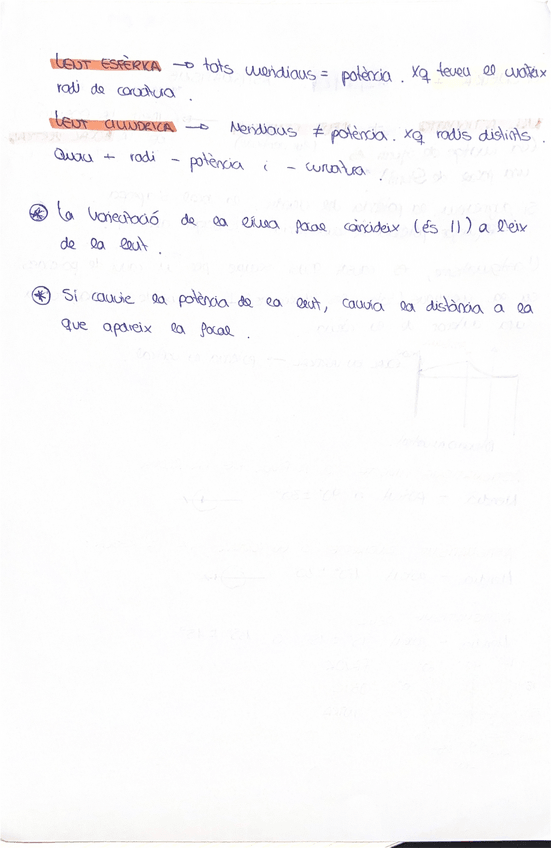 LENT ESFÈRICA → tots meridians = potència. xq tenen el mateix
radi de curvatura.
LENT CILINDRICA → Meridians ≠ potència. xq radis distints.
Quan + radi - potència i - curvatura.
* La orientació de la línea focal coincideix (és ||) a l'eix
de la lent.
* Si canvie la potència de la lent, canvia la distància a la
que apareix la focal.